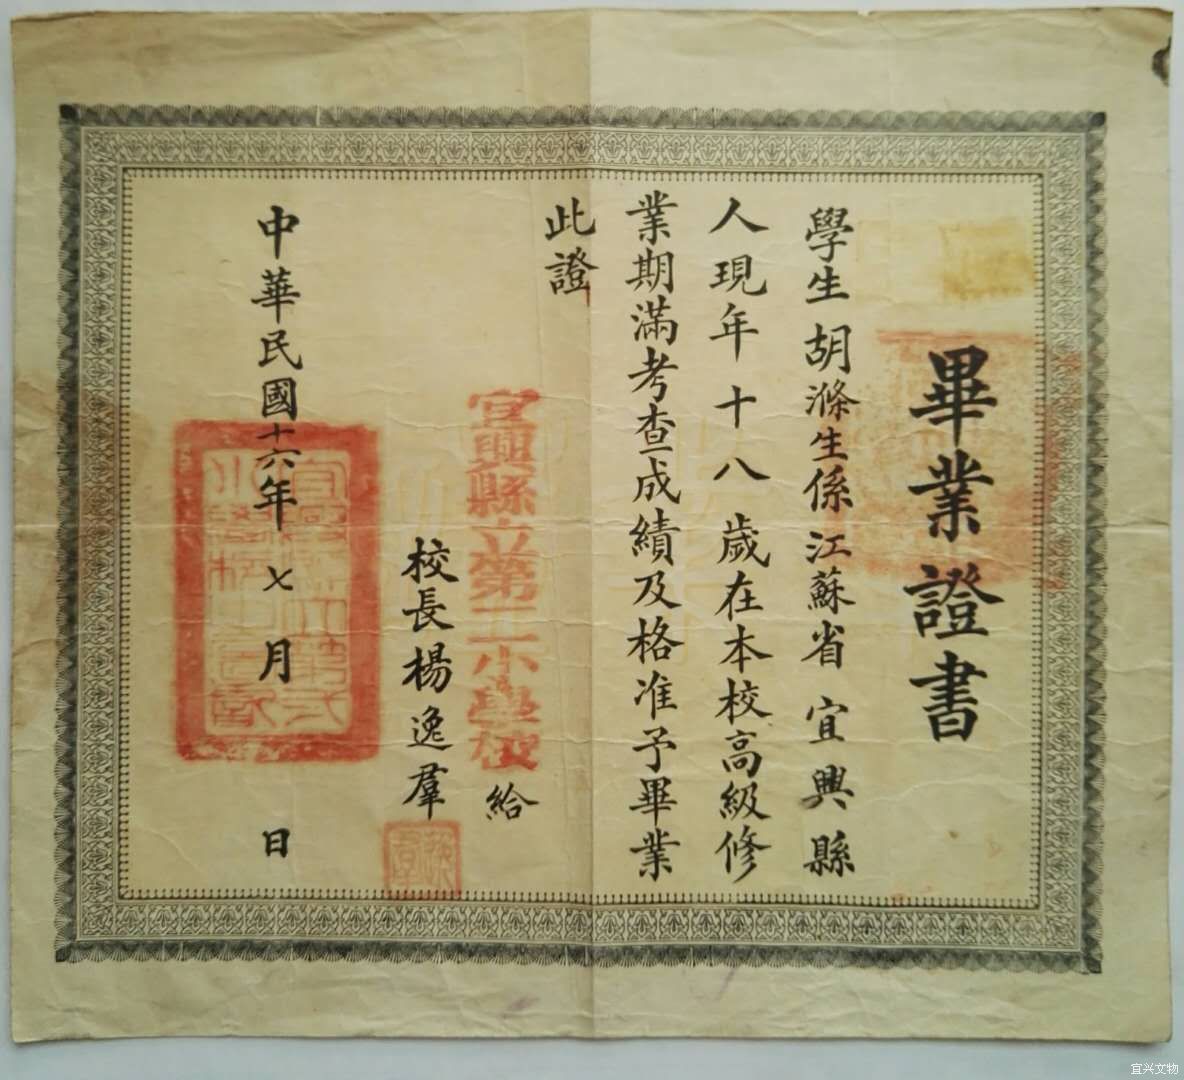 畢業證書
學生胡滌生係江蘇省宜興縣
人現年十八歲在本校高級修
業期滿考查成績及格准予畢業
此證
宜興縣立第二小學校給
校長楊逸羣
中華民國十六年七月 日
宜兴文物